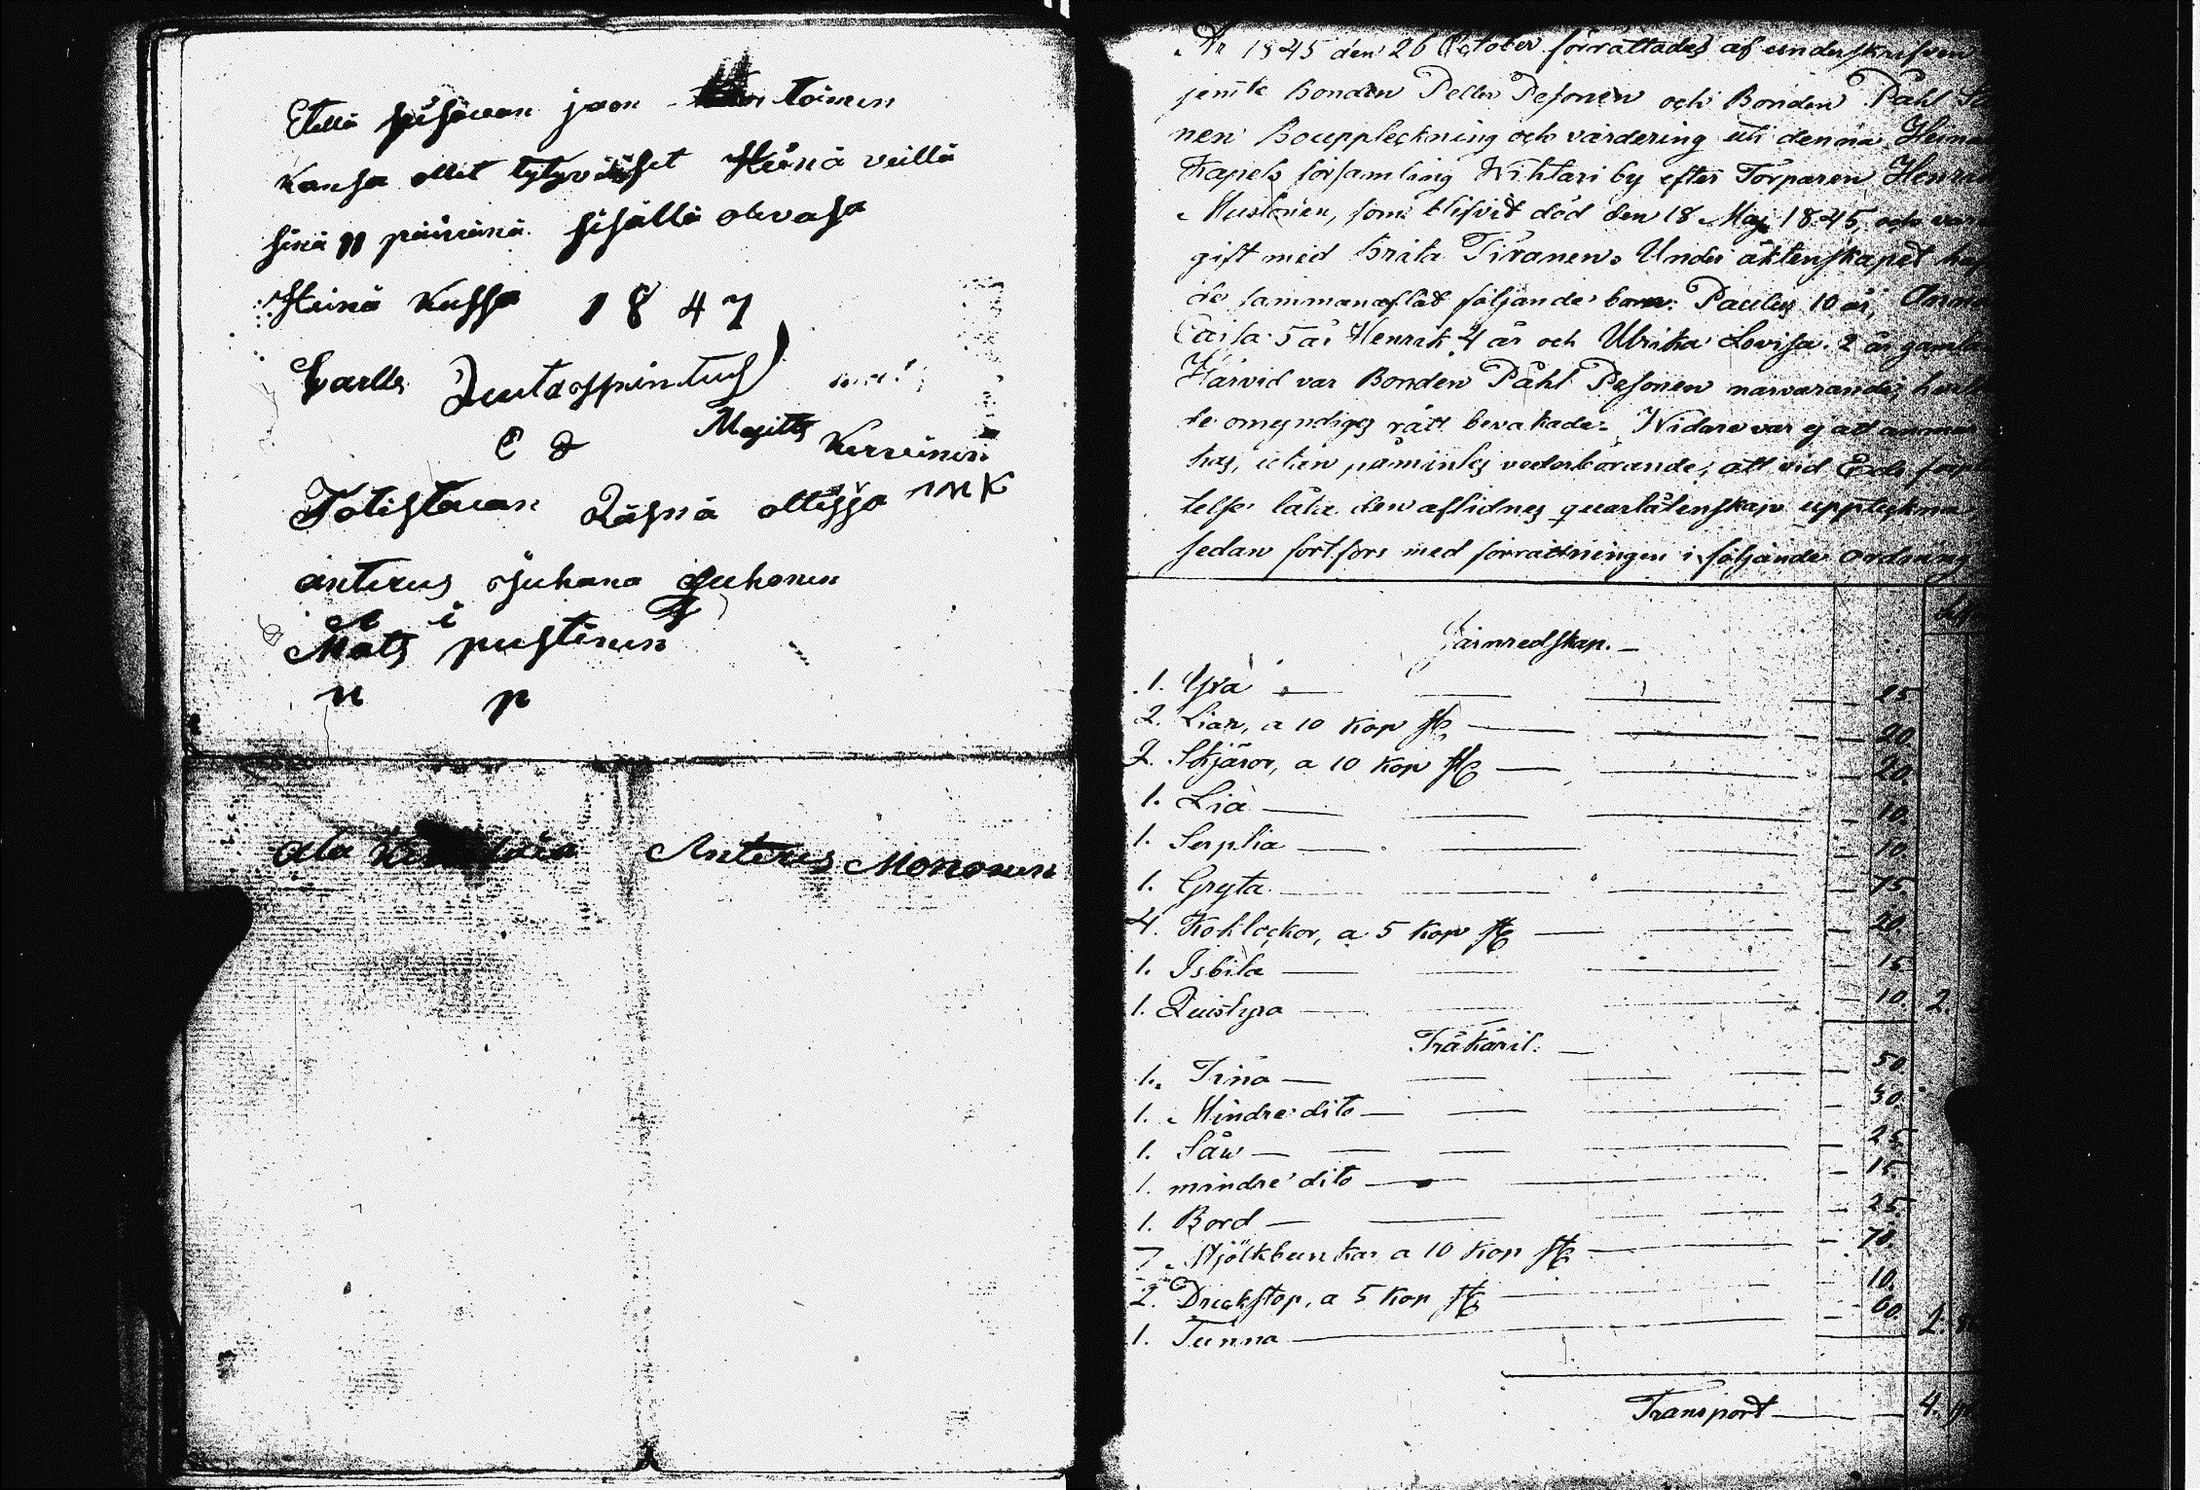 Että sisävan jaon toimen
Kansa ollet tytyväiset Heinä veillä
sinä 11 päivänä sisällä olevasa
Heinä Kussa 1847
Carlle
C L Majitts Kervinen
Totistavan Läsnä ollessa MK
anterus Juhana Juhonen
A i J
Mats pustinen
n p
Ala Anterus Mononen
År 1845 den 26 October förrättades af underskrifven
jemte Bonden Petter Pesonen och Bonden Påhl
nen Bouppteckning och värdering uti denna
Kapels församling Wihtari by efter Torparen Henrik
Mustonen, som blifvit död den 18 Maj 1845, och varit
gift med Brita Tiranen. Under äktenskapet haf
de sammanaflat följande barn: Paulus 10 år, Anna
Caisa 5 år Henrik 4 år och Ulrika Lovisa 2 år gamla
Härvid var Bonden Påhl Pesonen närvarande,
de omyndiges rätt bevakade. Widare var ej att anmär
kas, utan påmintes vederbörande, att vid Eds
telse låta den aflidnes quarlåtenskap uppteckna
sedan fortfors med förrättningen i följande ordning
Järnredskap.
1. Yxa 25
2. Liar, a 10 Kop st 20.
2. Skjäror, a 10 Kop st 20.
1. Lia 10.
1. Serplia 10.
1. Gryta 75
4. Koklockor, a 5 Kop st 20.
1. Isbila 15
1. Quistyxa 10. 2.
Träkäril.
1. Tina 50.
1. Mindre dito 30.
1. Såw 25
1. mindre dito 15
1. Bord 25.
7. Mjölkbunkar a 10 Kop st 70.
2. Drickstop, a 5 Kop st 10.
1. Tunna 60. 2.
Transport 4.